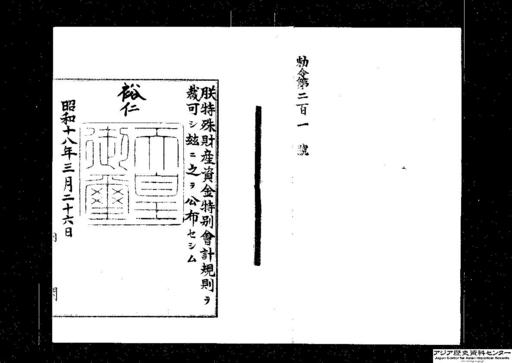 勅令第二百一號
朕特殊財産資金特別會計規則ヲ
裁可シ茲ニ之ヲ公布セシム
裕仁
天皇
御璽
昭和十八年三月二十六日
内閣
アジア歴史資料センター
Japan Center for Asian Historical Records